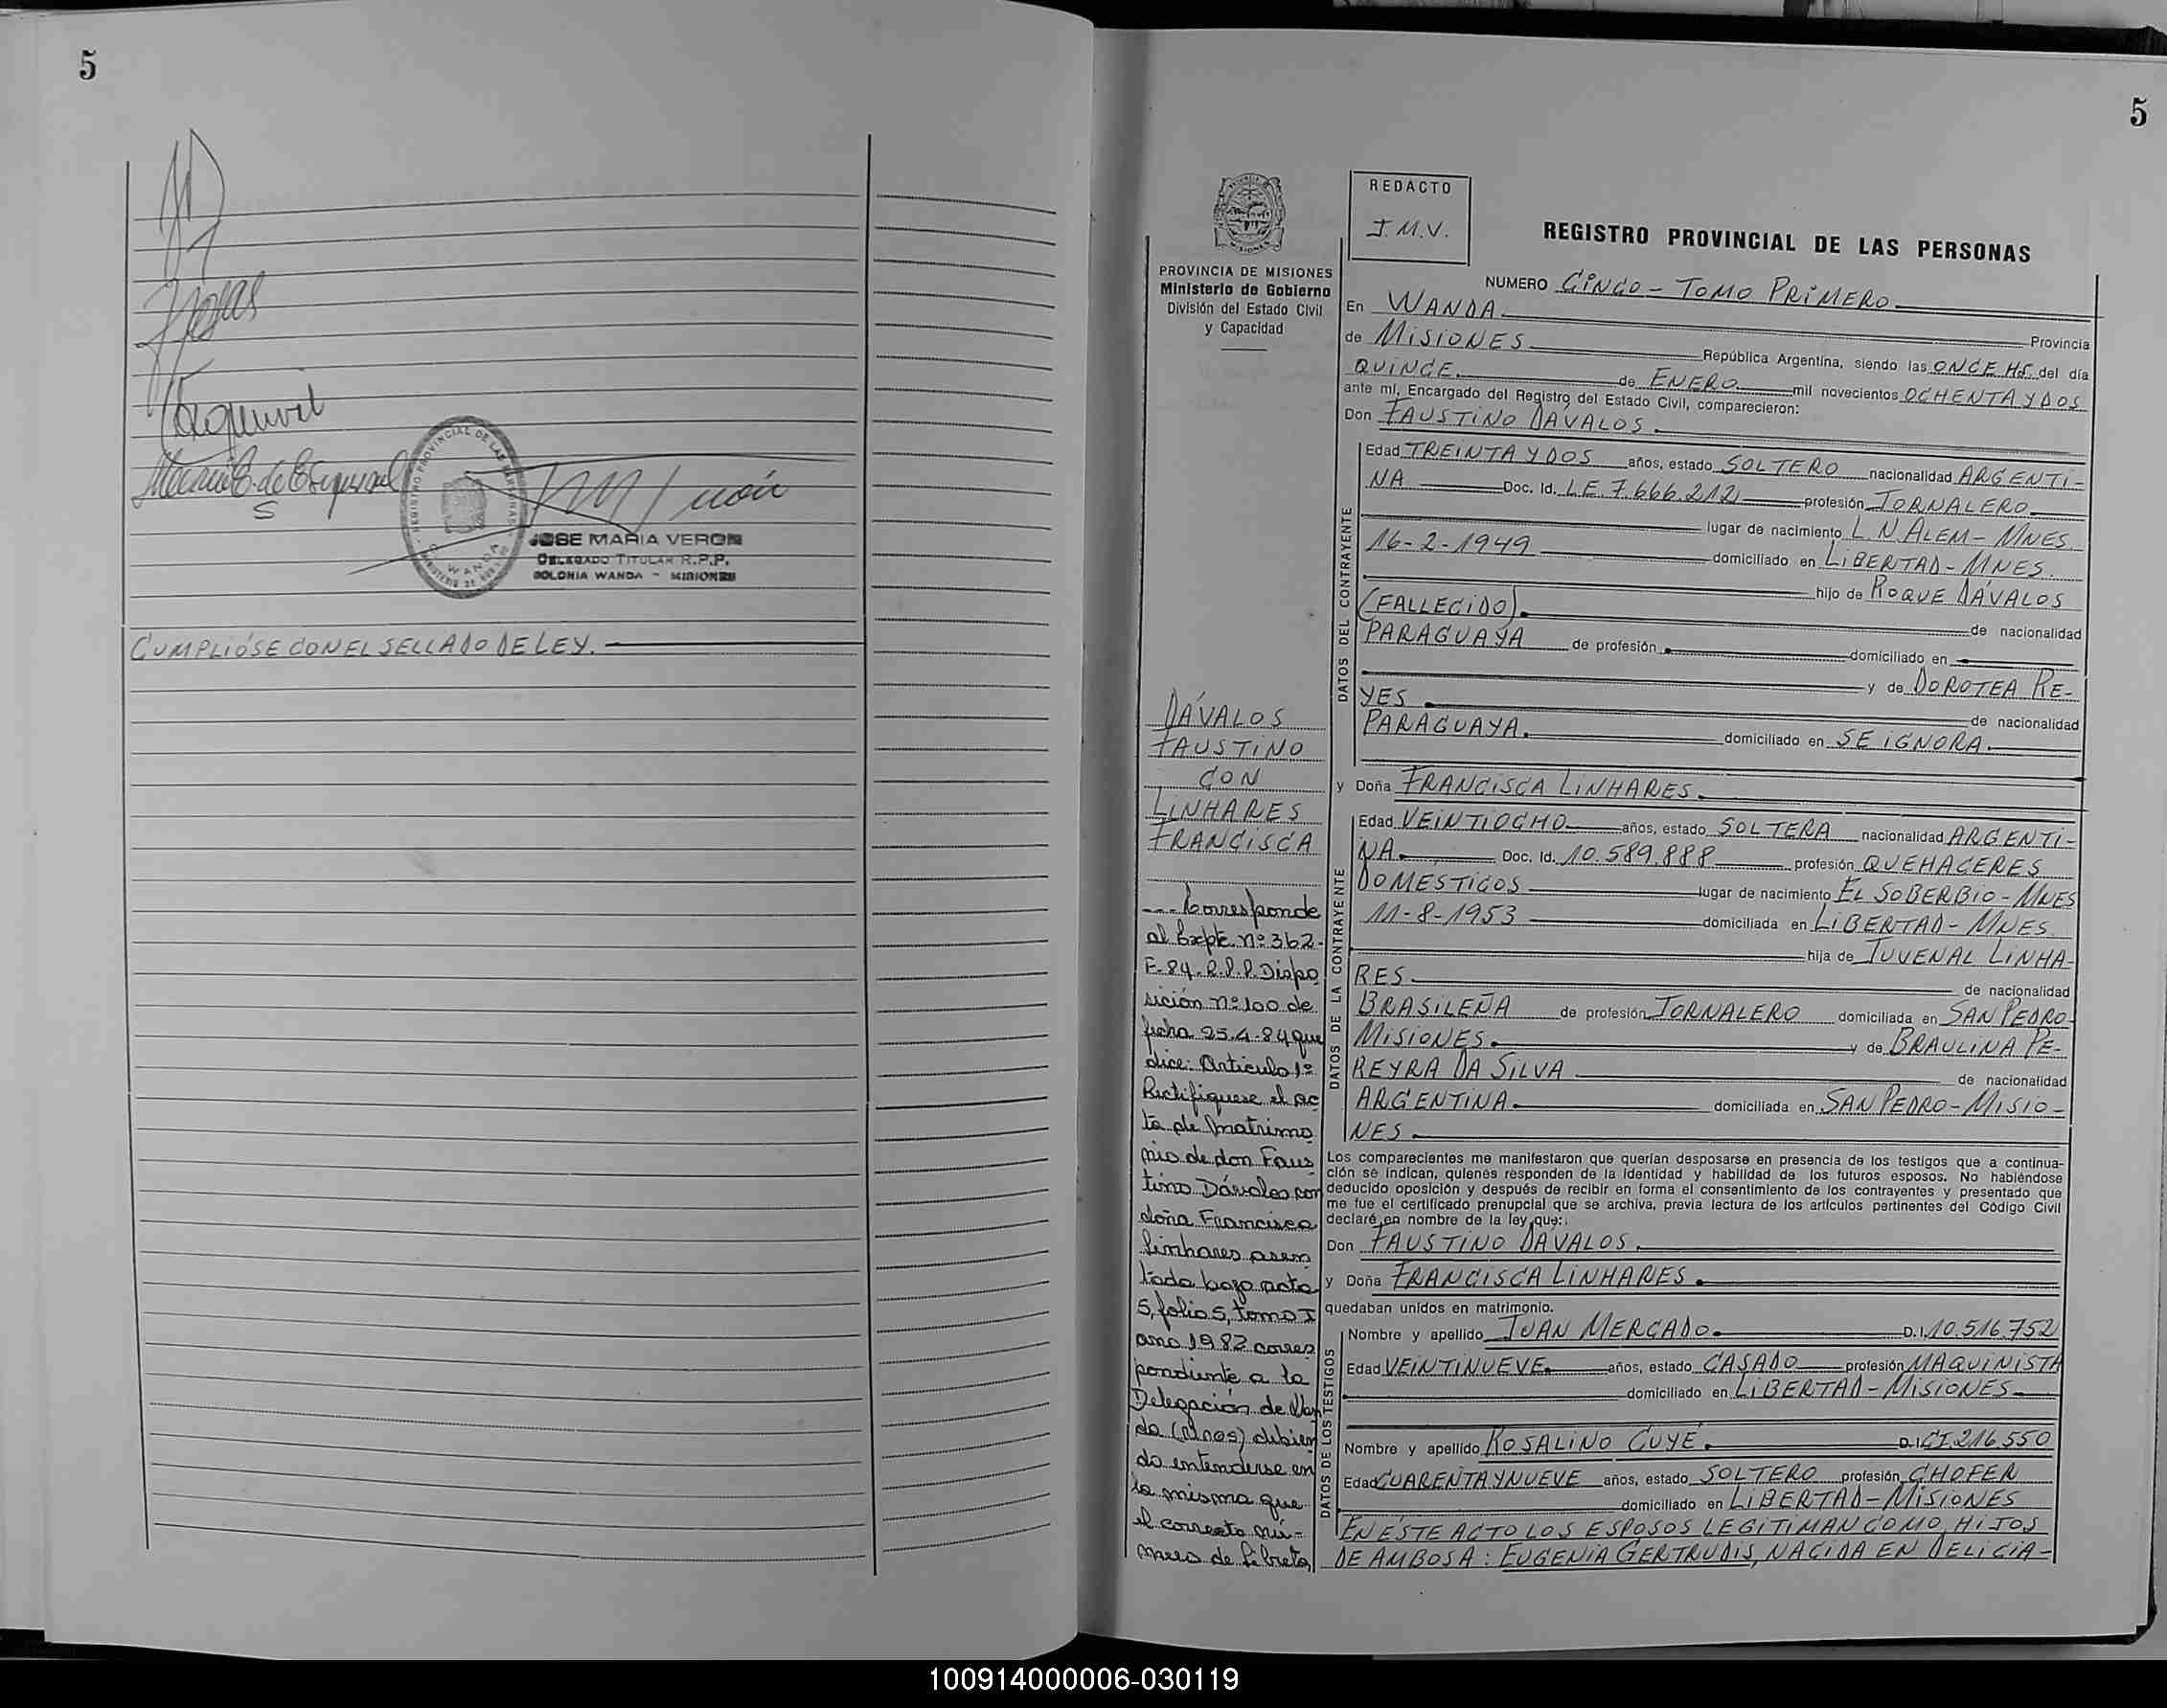 5
JOSE MARIA VERON
DELEGADO TITULAR R.P.P.
COLONIA WANDA - MISIONES
REGISTRO PROVINCIAL DE LAS PERSONAS
WANDA
CUMPLIÓSE CON EL SELLADO DE LEY.
5
REDACTO
J.M.V.
PROVINCIA DE MISIONES
Ministerio de Gobierno
División del Estado Civil
y Capacidad
REGISTRO PROVINCIAL DE LAS PERSONAS
NUMERO CINCO - TOMO PRIMERO
En WANDA. Provincia
de MISIONES República Argentina, siendo las ONCE HS. del día
QUINCE. de ENERO mil novecientos OCHENTA Y DOS
ante mí, Encargado del Registro del Estado Civil, comparecieron:
Don FAUSTINO DÁVALOS.
DATOS DEL CONTRAYENTE
Edad TREINTA Y DOS años, estado SOLTERO nacionalidad ARGENTI-
NA Doc. Id. L.E. 7.666.212 profesión JORNALERO
lugar de nacimiento L. N. ALEM - MNES
16-2-1949 domiciliado en LIBERTAD - MNES.
hijo de ROQUE DÁVALOS
(FALLECIDO). de nacionalidad
PARAGUAYA de profesión domiciliado en
y de DOROTEA RE-
YES. de nacionalidad
PARAGUAYA. domiciliado en SE IGNORA.
y Doña FRANCISCA LINHARES.
DATOS DE LA CONTRAYENTE
Edad VEINTIOCHO años, estado SOLTERA nacionalidad ARGENTI-
NA. Doc. Id. 10.589.888 profesión QUEHACERES
DOMESTICOS lugar de nacimiento EL SOBERBIO - MNES
11-8-1953 domiciliada en LIBERTAD - MNES.
hija de JUVENAL LINHA-
RES. de nacionalidad
BRASILEÑA de profesión JORNALERO domiciliada en SAN PEDRO-
MISIONES. y de BRAULINA PE-
REYRA DA SILVA de nacionalidad
ARGENTINA. domiciliada en SAN PEDRO - MISIO-
NES.
Los comparecientes me manifestaron que querían desposarse en presencia de los testigos que a continua-
ción se indican, quienes responden de la identidad y habilidad de los futuros esposos. No habiéndose
deducido oposición y después de recibir en forma el consentimiento de los contrayentes y presentado que
me fue el certificado prenupcial que se archiva, previa lectura de los artículos pertinentes del Código Civil
declaré en nombre de la ley que:
Don FAUSTINO DÁVALOS.
y Doña FRANCISCA LINHARES.
quedaban unidos en matrimonio.
DATOS DE LOS TESTIGOS
Nombre y apellido JUAN MERCADO. D.I. 10.516.752
Edad VEINTINUEVE. años, estado CASADO profesión MAQUINISTA
domiciliado en LIBERTAD - MISIONES
Nombre y apellido ROSALINO CUYÉ. D.I. CI 216.550
Edad CUARENTA Y NUEVE años, estado SOLTERO profesión CHOFER
domiciliado en LIBERTAD - MISIONES
EN ÉSTE ACTO LOS ESPOSOS LEGITIMAN COMO HIJOS
DE AMBOS A: EUGENIA GERTRUDIS, NACIDA EN DELICIA-
DÁVALOS
FAUSTINO
CON
LINHARES
FRANCISCA
--- Corresponde
al Expte. nº 362-
F-84-R.P.P. Dispo
sición nº 100 de
fecha 25-4-84 que
dice: Artículo 1º
Rectifíquese el ac
ta de matrimo
nio de don Faus
tino Dávalos con
doña Francisca
Linhares asen
tada bajo acta
5, folio 5, tomo I
año 1982 corres
pondiente a la
Delegación de Wan
da (Mnes) debien
do entenderse en
la misma que
el correcto nú-
mero de libreta
100914000006-030119